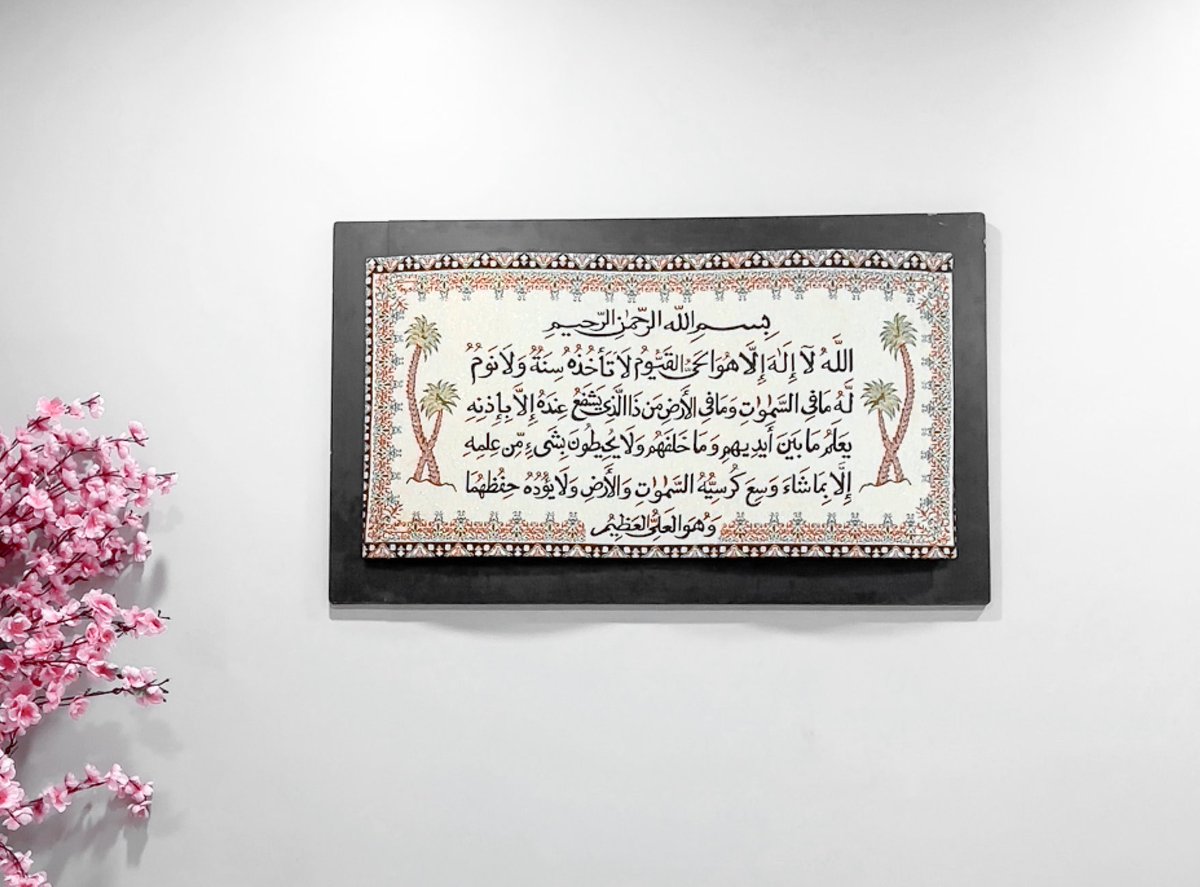 بِسْمِ اللّٰهِ الرَّحْمٰنِ الرَّحِيمِ
اللَّهُ لَآ إِلَٰهَ إِلَّا هُوَ الْحَىُّ الْقَيُّومُ لَا تَأْخُذُهُ سِنَةٌ وَلَا نَوْمٌ
لَّهُ مَا فِى السَّمٰوٰتِ وَمَا فِى الْأَرْضِ مَن ذَا الَّذِى يَشْفَعُ عِندَهُ إِلَّا بِإِذْنِهِ
يَعْلَمُ مَا بَيْنَ أَيْدِيهِمْ وَمَا خَلْفَهُمْ وَلَا يُحِيطُونَ بِشَىْءٍ مِّنْ عِلْمِهِ
إِلَّا بِمَا شَاءَ وَسِعَ كُرْسِيُّهُ السَّمٰوٰتِ وَالْأَرْضِ وَلَا يَؤُدُهُ حِفْظُهُمَا
وَهُوَ الْعَلِىُّ الْعَظِيمُ